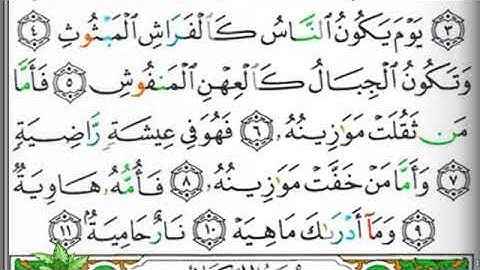 ٣ يَوْمَ يَكُونُ ٱلنَّاسُ كَٱلْفَرَاشِ ٱلْمَبْثُوثِ ٤
وَتَكُونُ ٱلْجِبَالُ كَٱلْعِهْنِ ٱلْمَنفُوشِ ٥ فَأَمَّا
مَن ثَقُلَتْ مَوَٰزِينُهُۥ ٦ فَهُوَ فِى عِيشَةٍ رَّاضِيَةٍ
٧ وَأَمَّا مَنْ خَفَّتْ مَوَٰزِينُهُۥ ٨ فَأُمُّهُۥ هَاوِيَةٌ
٩ وَمَآ أَدْرَىٰكَ مَا هِيَهْ ١٠ نَارٌ حَامِيَةٌۢ ١١